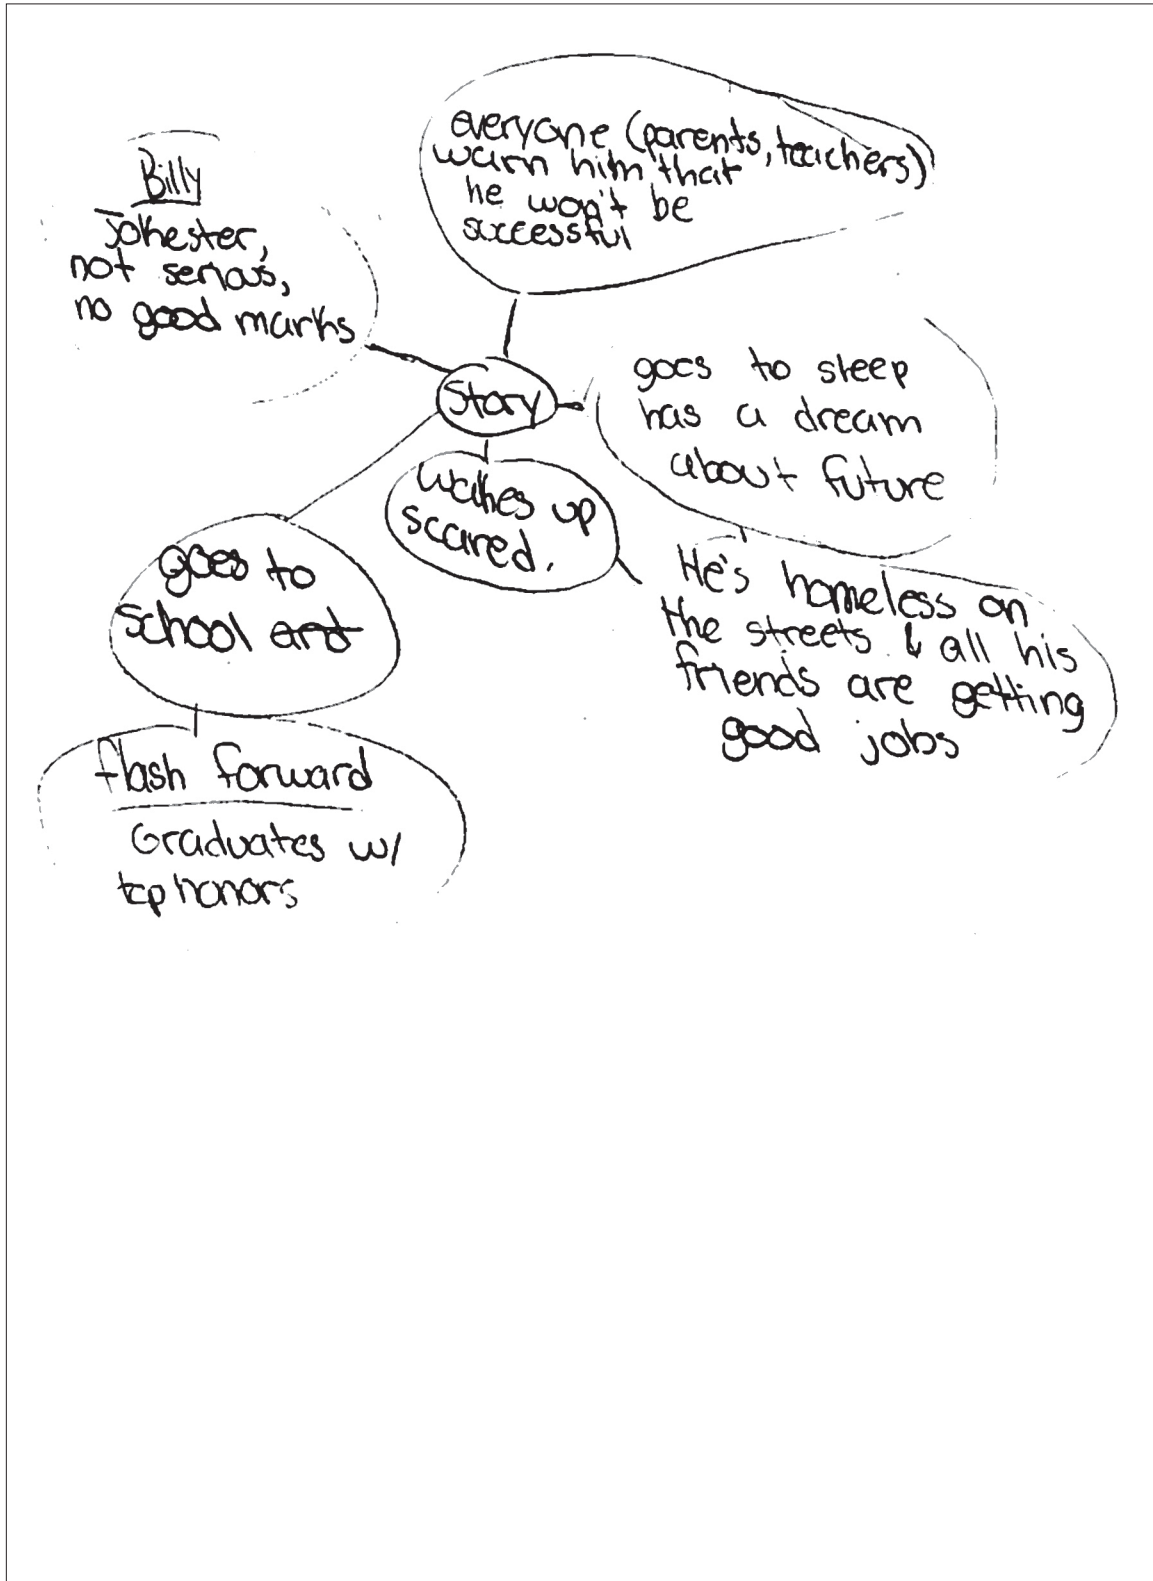 Billy
jokester,
not serious,
no good marks
everyone (parents, teachers)
warn him that
he won't be
successful
Story
goes to sleep
has a dream
about future
He's homeless on
the streets & all his
friends are getting
good jobs
wakes up
scared.
goes to
school and
flash forward
Graduates w/
top honors